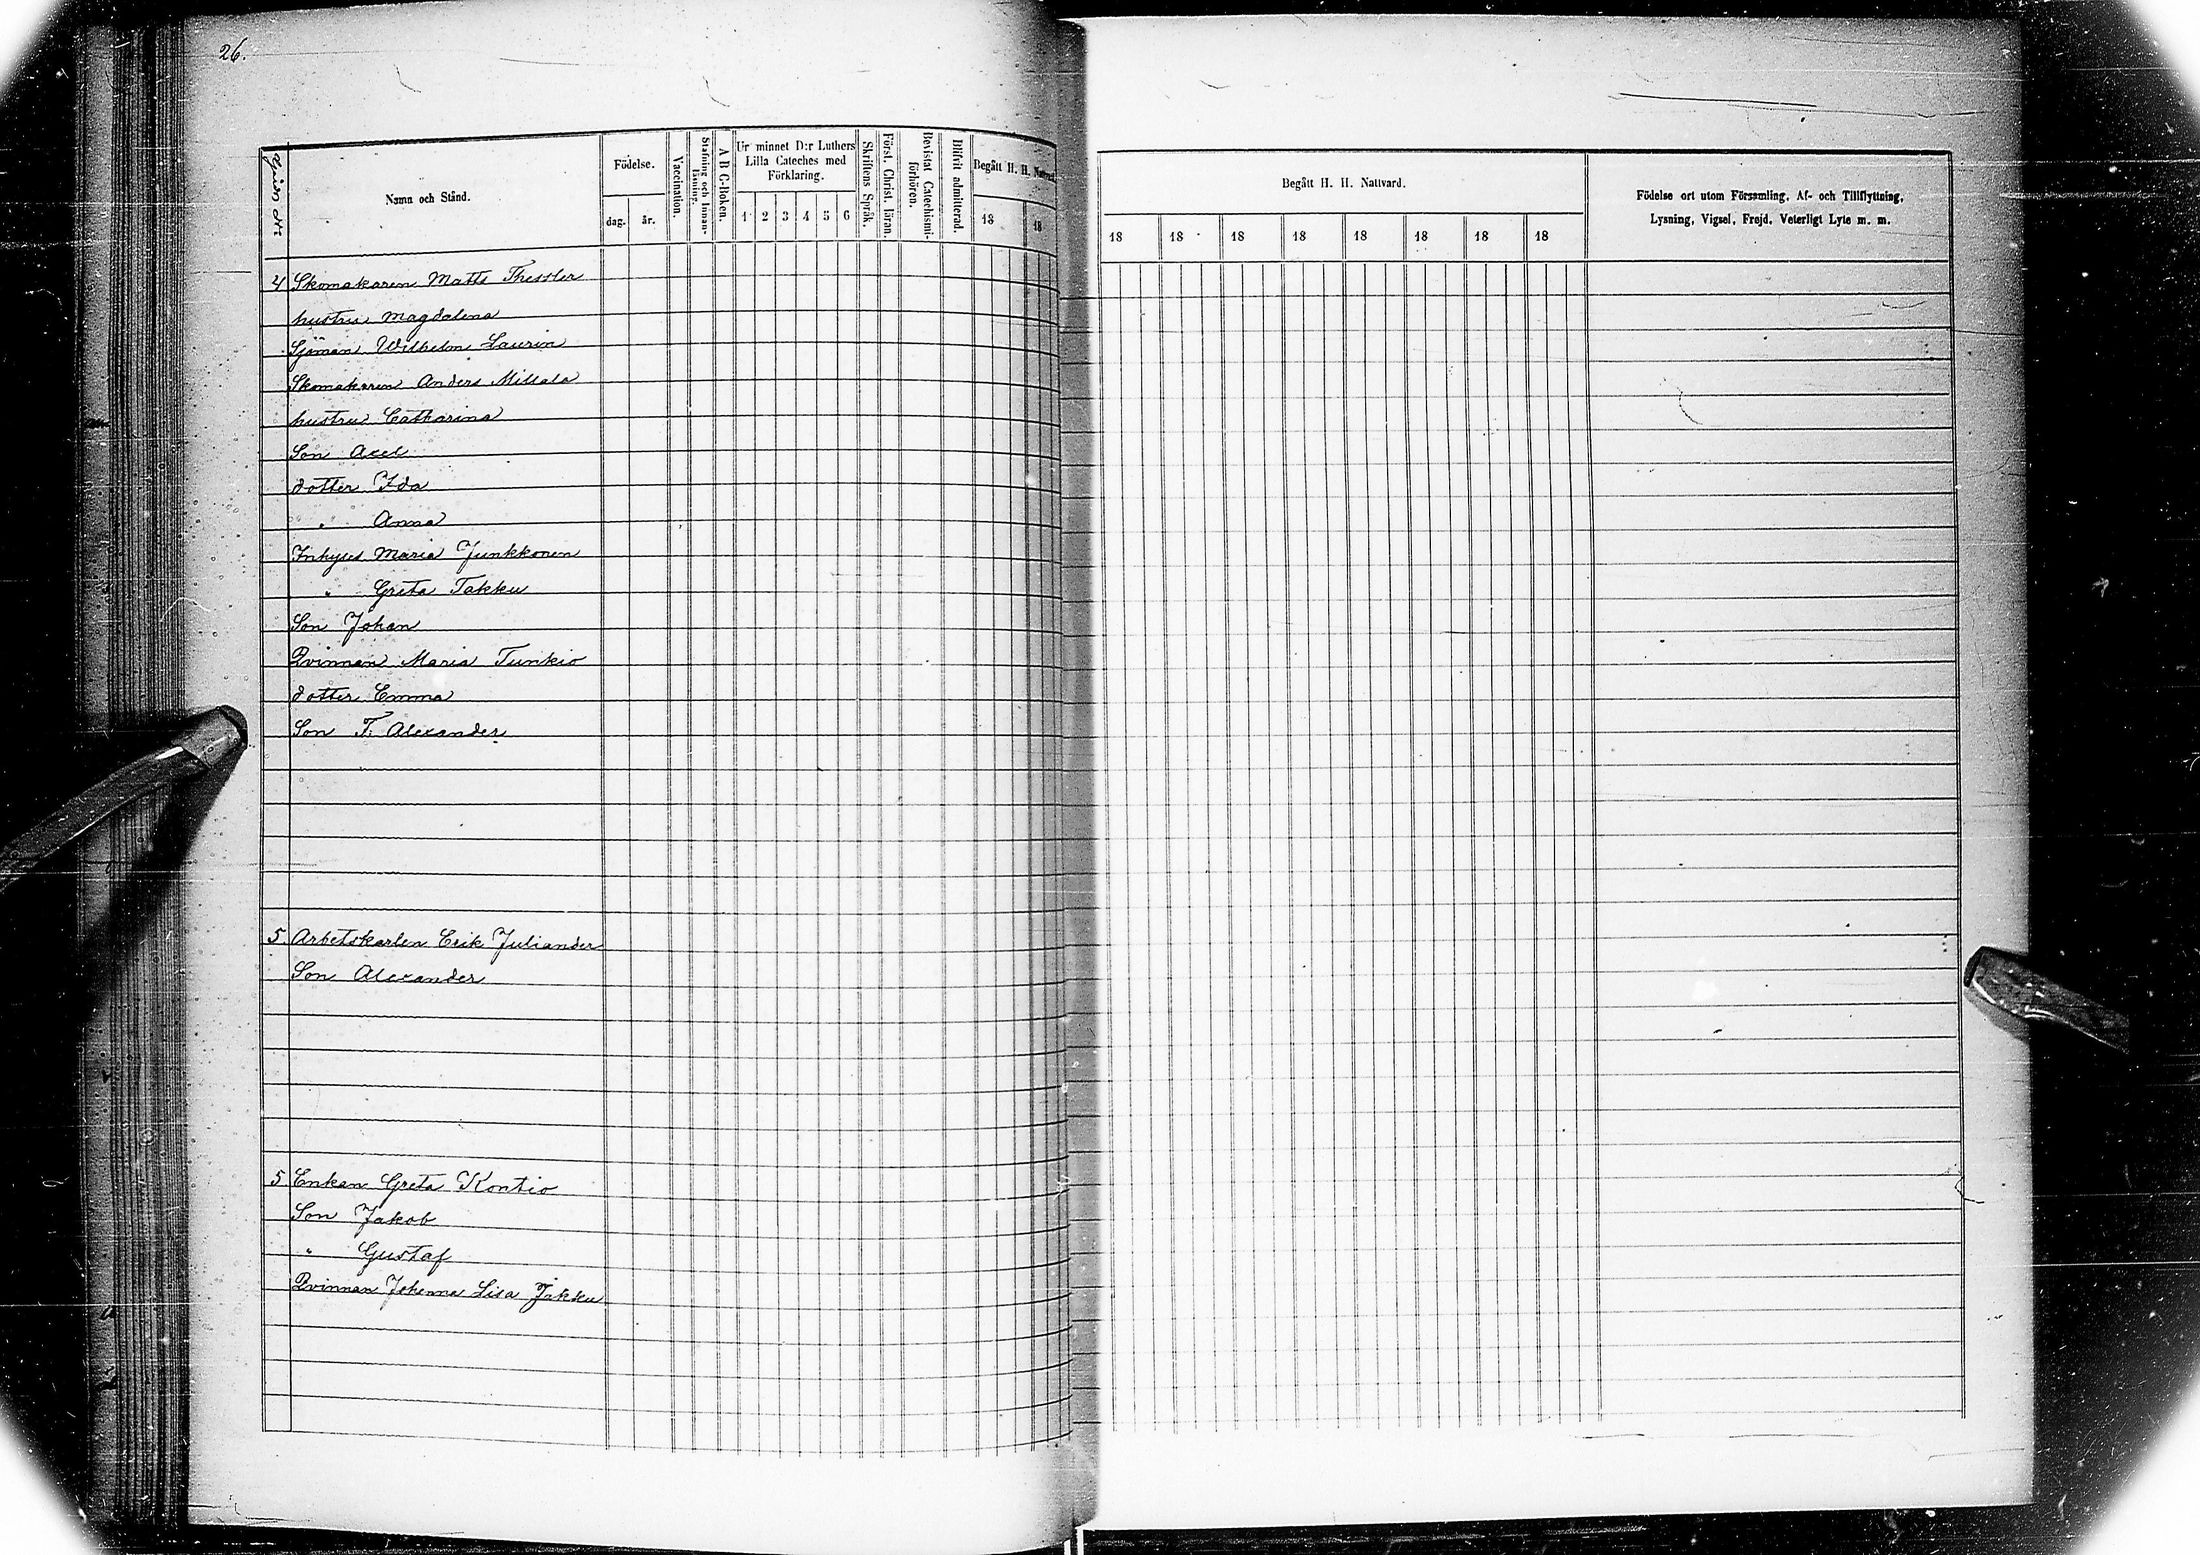 26.
Gård N:
Namn och Stånd.
Födelse.
dag.
år.
Vaccination.
Stafning och Innanläsning.
A B C-Boken.
Ur minnet D:r Luthers Lilla Cateches med Förklaring.
1 2 3 4 5 6
Skriftens Språk.
Först. Christ. läran.
Bevistat Catechismiförhören.
Blifvit admitterad.
Begått H. H. Nattvard.
18 18
Begått H. H. Nattvard.
18 18 18 18 18 18 18 18
Födelse ort utom Församling, Af- och Tillflyttning,
Lysning, Vigsel, Frejd, Veterligt Lyte m. m.
4 Skomakaren Matts Thessler
hustru Magdalena
Sjöman Wilhelm Laurin
Skomakaren Anders Millala
hustru Catharina
Son Axel
dotter Ida
" Anna
Inhyses Maria Junkkonen
" Greta Takku
Son Johan
Qvinnan Maria Tunkio
dotter Emma
Son F. Alexander
5 Arbetskarlen Erik Juliander
Son Alexander
5 Enkan Greta Kontio
Son Jakob
" Gustaf
Qvinnan Johanna Lisa Jäkku